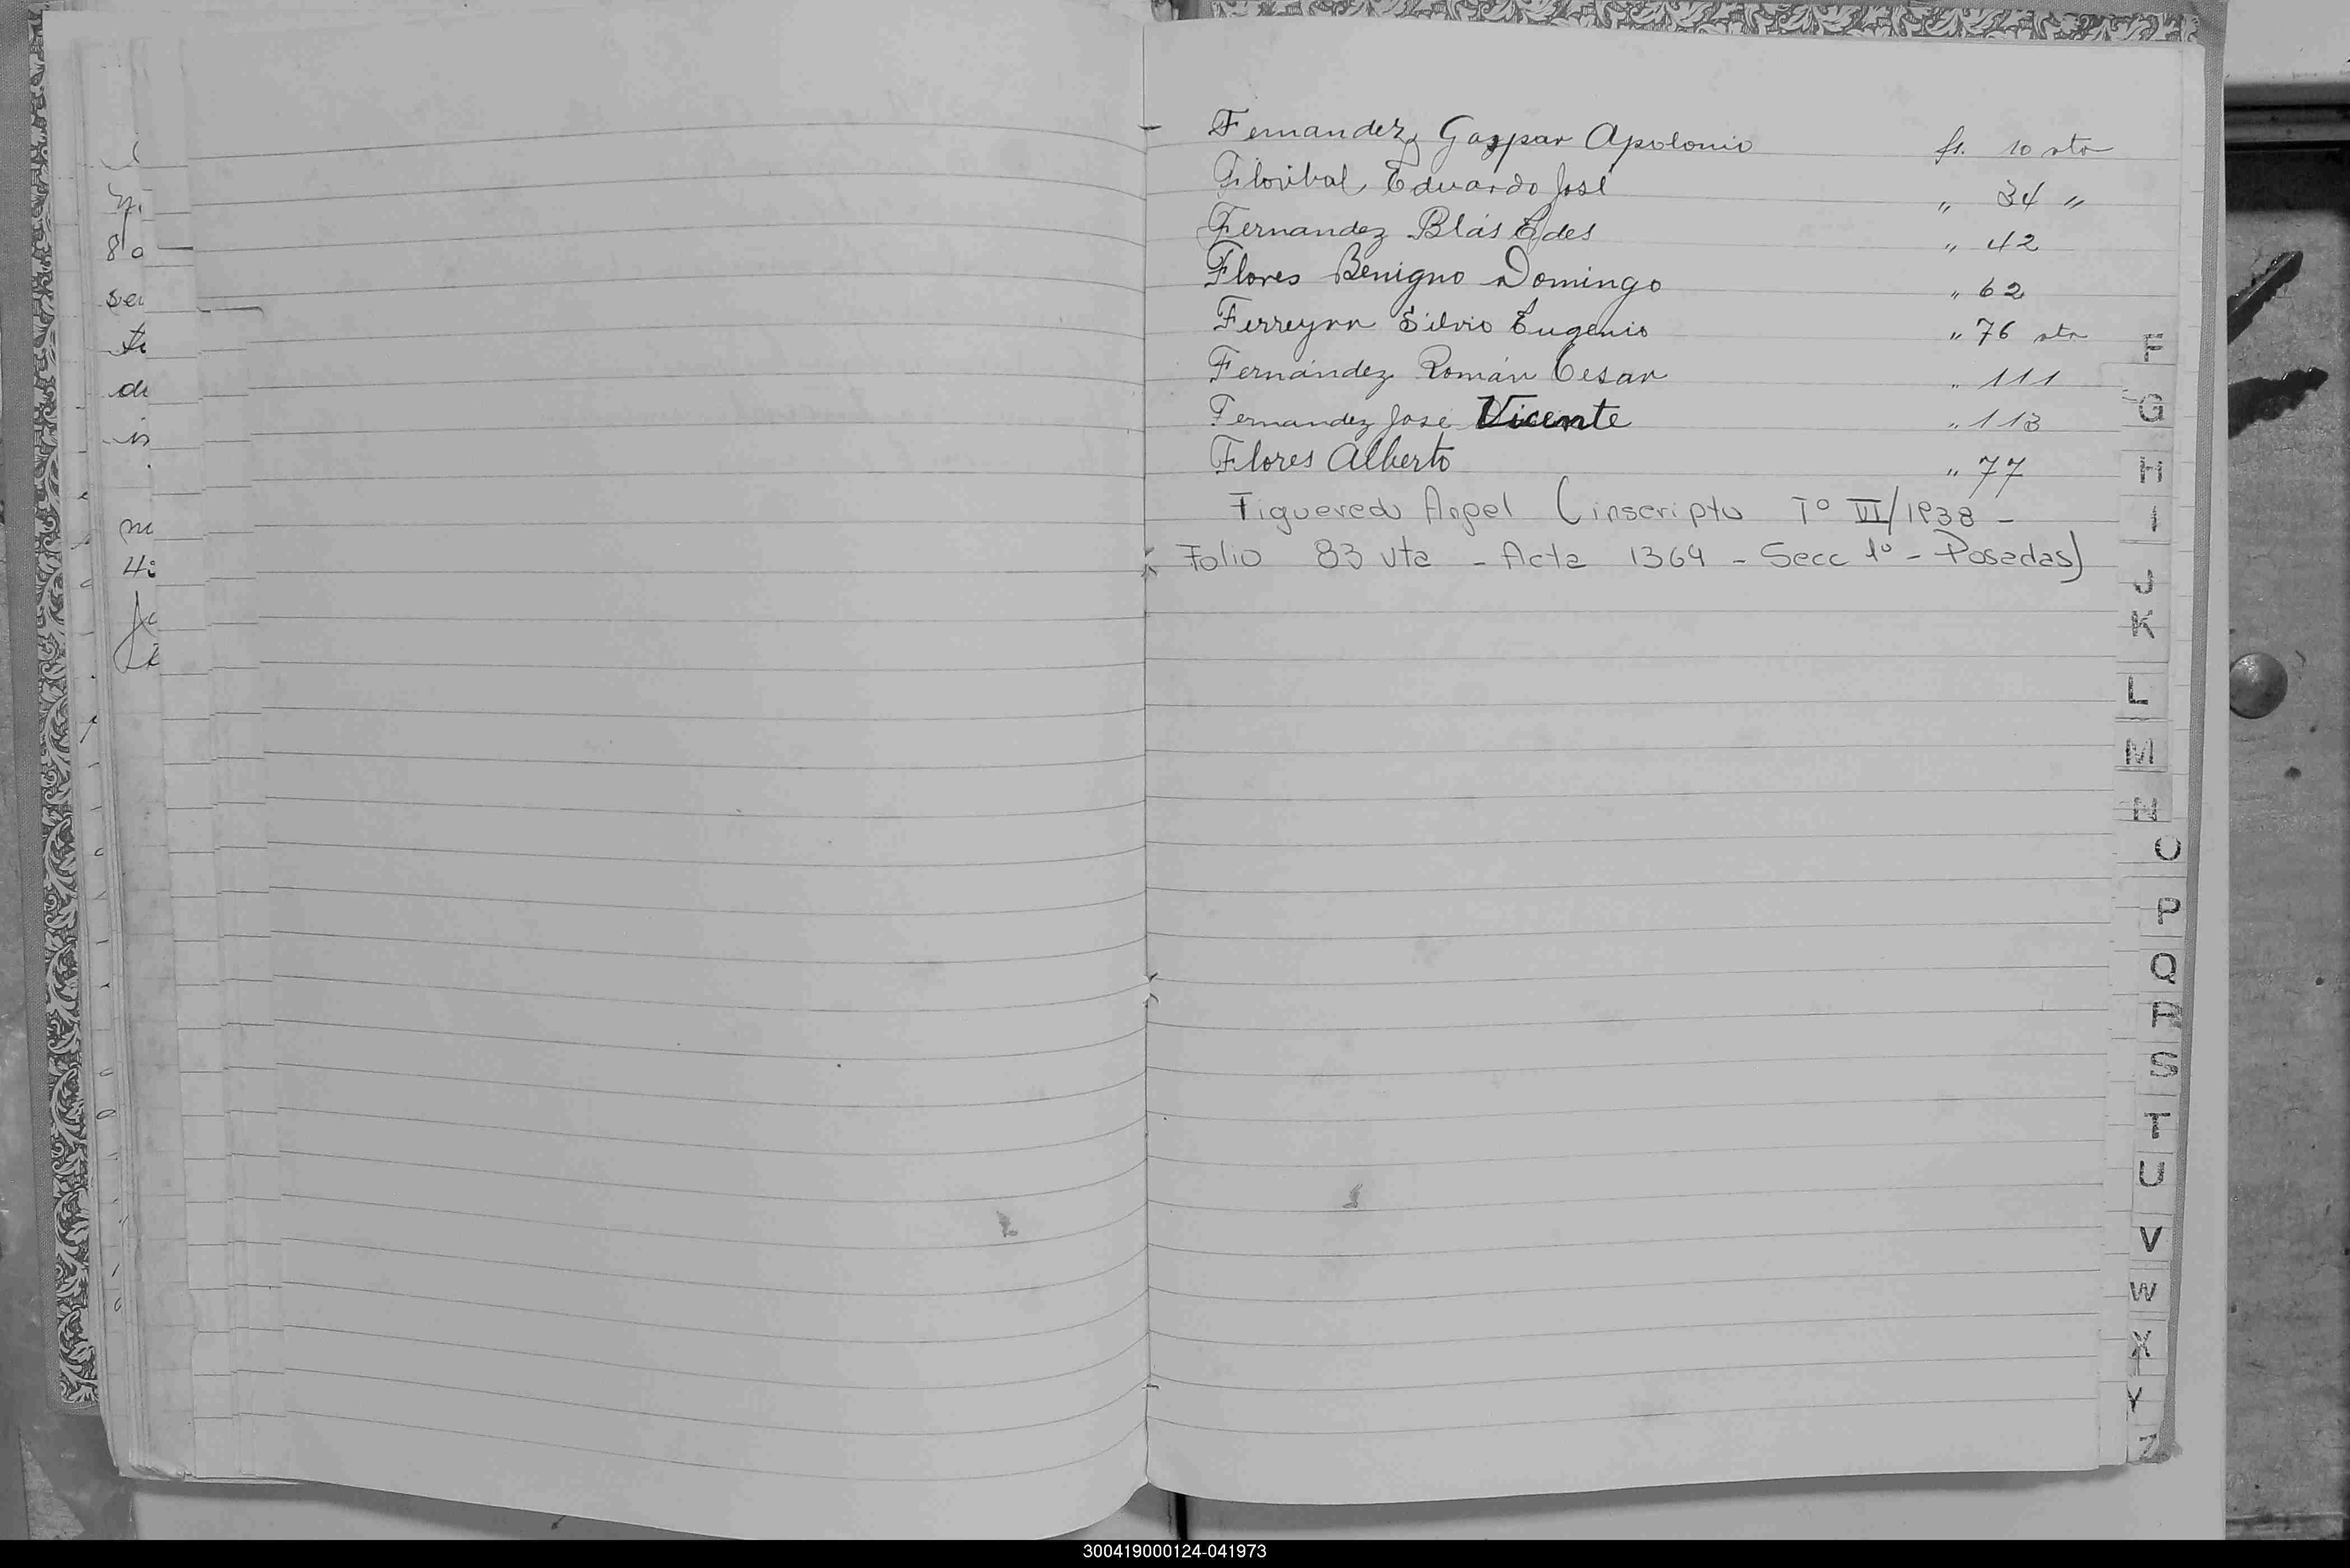 Fernandez, Gaspar Apolonio fs. 10 vta
Eduardo José „ 34 "
Fernandez Blás Edes „ 42
Flores Benigno Domingo „ 62
Ferreyra Silvio Eugenio „ 76 vta
Fernández Román Cesar „ 111
Fernandez José Vicente „ 113
Flores Alberto „ 77
Figueredo Angel (inscripto Tº VI/1938 -
Folio 83 vta - Acta 1364 - Secc 1º - Posadas)
F
G
H
I
J
K
L
M
N
O
P
Q
R
S
T
U
V
W
X
Y
Z
300419000124-041973